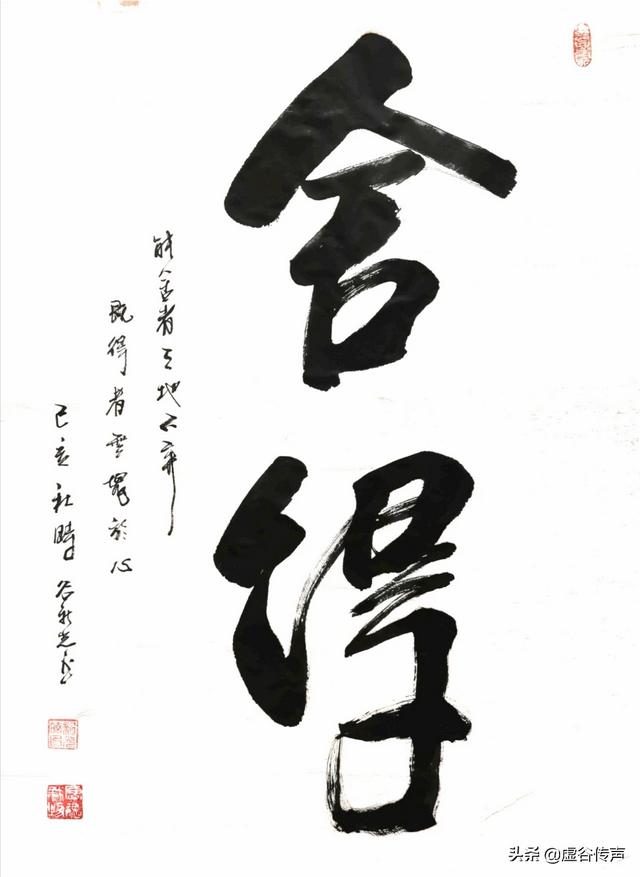 舍得
能舍者天地不弃
既得者無愧於心
己亥秋時 谷新光书
头条 @虚谷传声